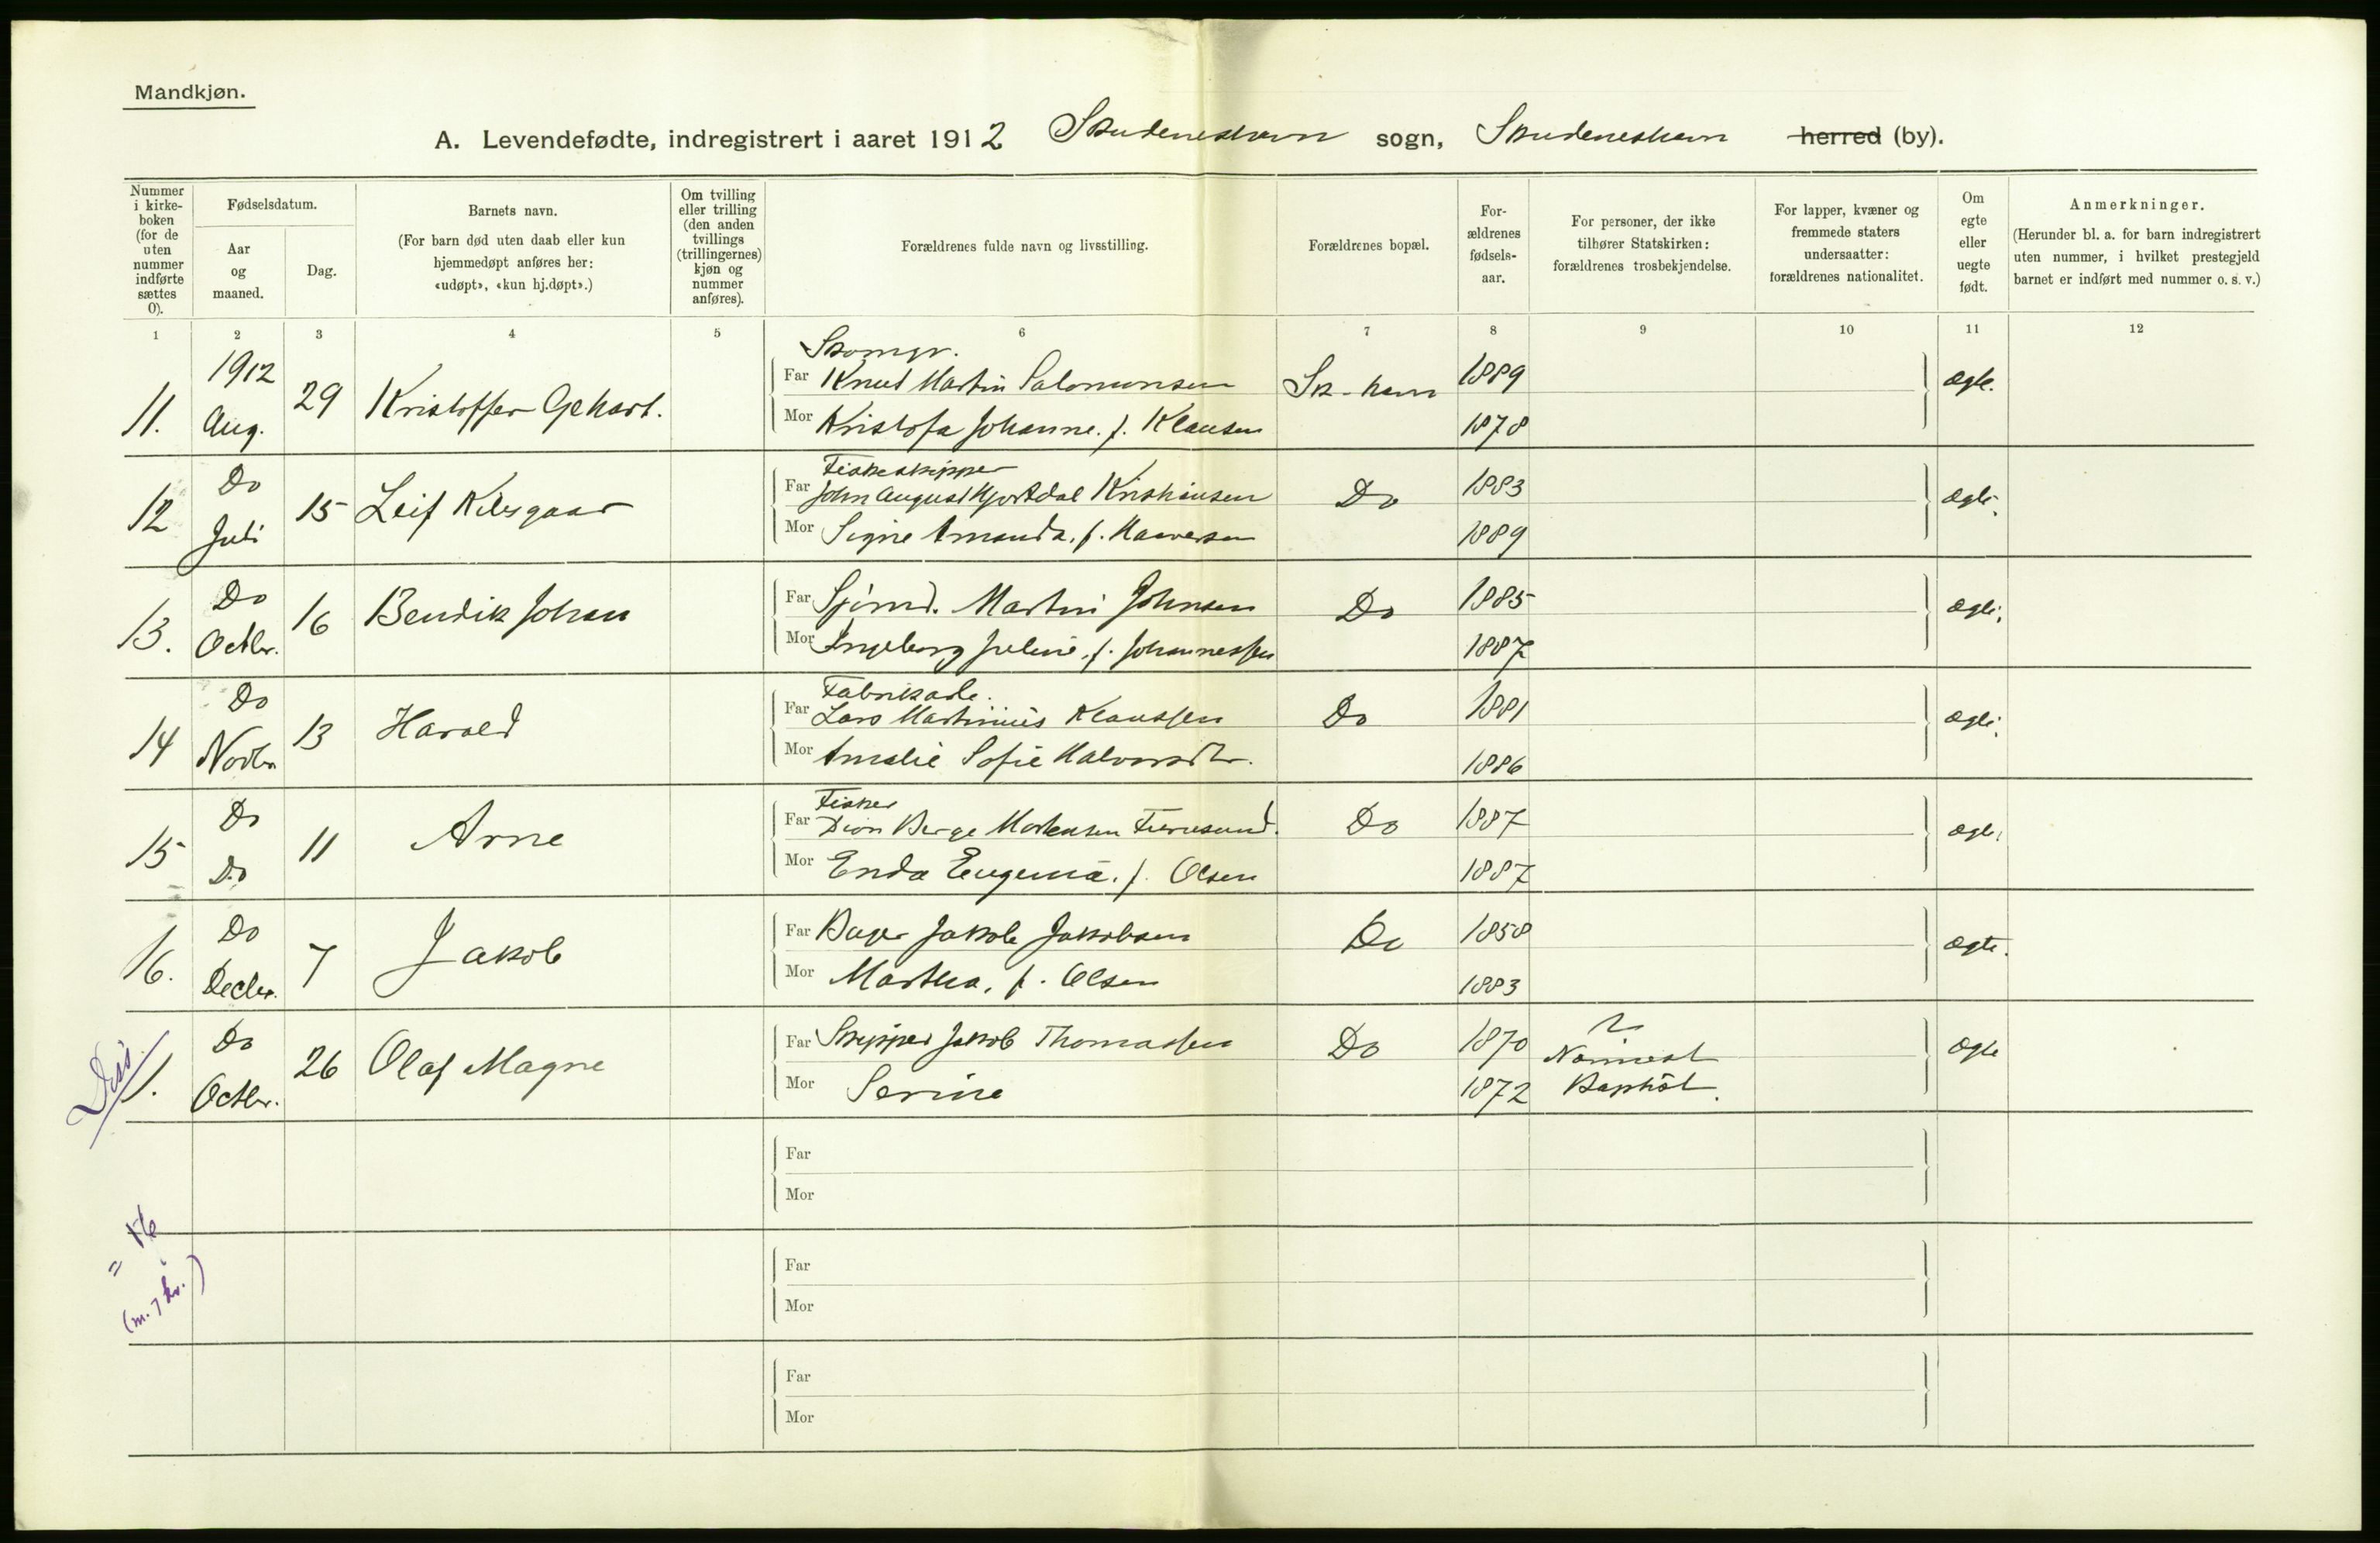 Mandkjøn.
A. Levendefødte, indregistrert i aaret 1912 Skudeneshavn sogn, Skudeneshavn herred (by).
Nummer i kirke-boken (for de uten nummer indførte sættes 0).
Fødselsdatum.
Aar og maaned.
Dag.
Barnets navn.
(For barn død uten daab eller kun hjemmedøpt anføres her: «udøpt», «kun hj.døpt».)
Om tvilling eller trilling (den anden tvillings (trillingernes) kjøn og nummer anføres).
Forældrenes fulde navn og livsstilling.
Forældrenes bopæl.
For-ældrenes fødsels-aar.
For personer, der ikke tilhører Statskirken: forældrenes trosbekjendelse.
For lapper, kvæner og fremmede staters undersaatter: forældrenes nationalitet.
Om egte eller uegte født.
Anmerkninger.
(Herunder bl. a. for barn indregistrert uten nummer, i hvilket prestegjeld barnet er indført med nummer o. s. v.)
1 2 3 4 5 6 7 8 9 10 11 12
Skomgr.
11. 1912 Aug. 29 Kristoffer Gehart. Far Knut Martin Salomonsen Sk-havn 1889 ægte.
Mor Kristofa Johanne. f. Klausen 1878
Fiskeskipper
12 Do Juli 15 Leif Far John August Hjortdal Kristiansen Do 1883 ægte.
Mor Signe Amanda. f. 1889
13. Do Octbr. 16 Bendik Johan Far Sjømd. Martin Johnsen Do 1885 ægte.
Mor Ingeborg Juline. f. Johannessen 1887
Fabrikarb.
14 Do Novbr 13 Harald Far Lars Martinius Klaussen Do 1881 ægte.
Mor Amalie Sofie Halvorsdtr. 1886
Fisker
15 Do Do 11 Arne Far Berge Mortensen Do 1887 ægte.
Mor Enda Eugenia. f. Olsen 1887
16. Do Decbr. 7 Jakob Far Bager Jakob Jakobsen Do 1858 ægte.
Mor Martha. f. Olsen 1883
Dis. 1. Do Octbr. 26 Olaf Magne Far Skipper Jakob Thomassen Do 1870 ægte
Mor Serine 1872 Baptist.
Far
Mor
= 16
Far
(m. 7 kv.)
Mor
Far
Mor